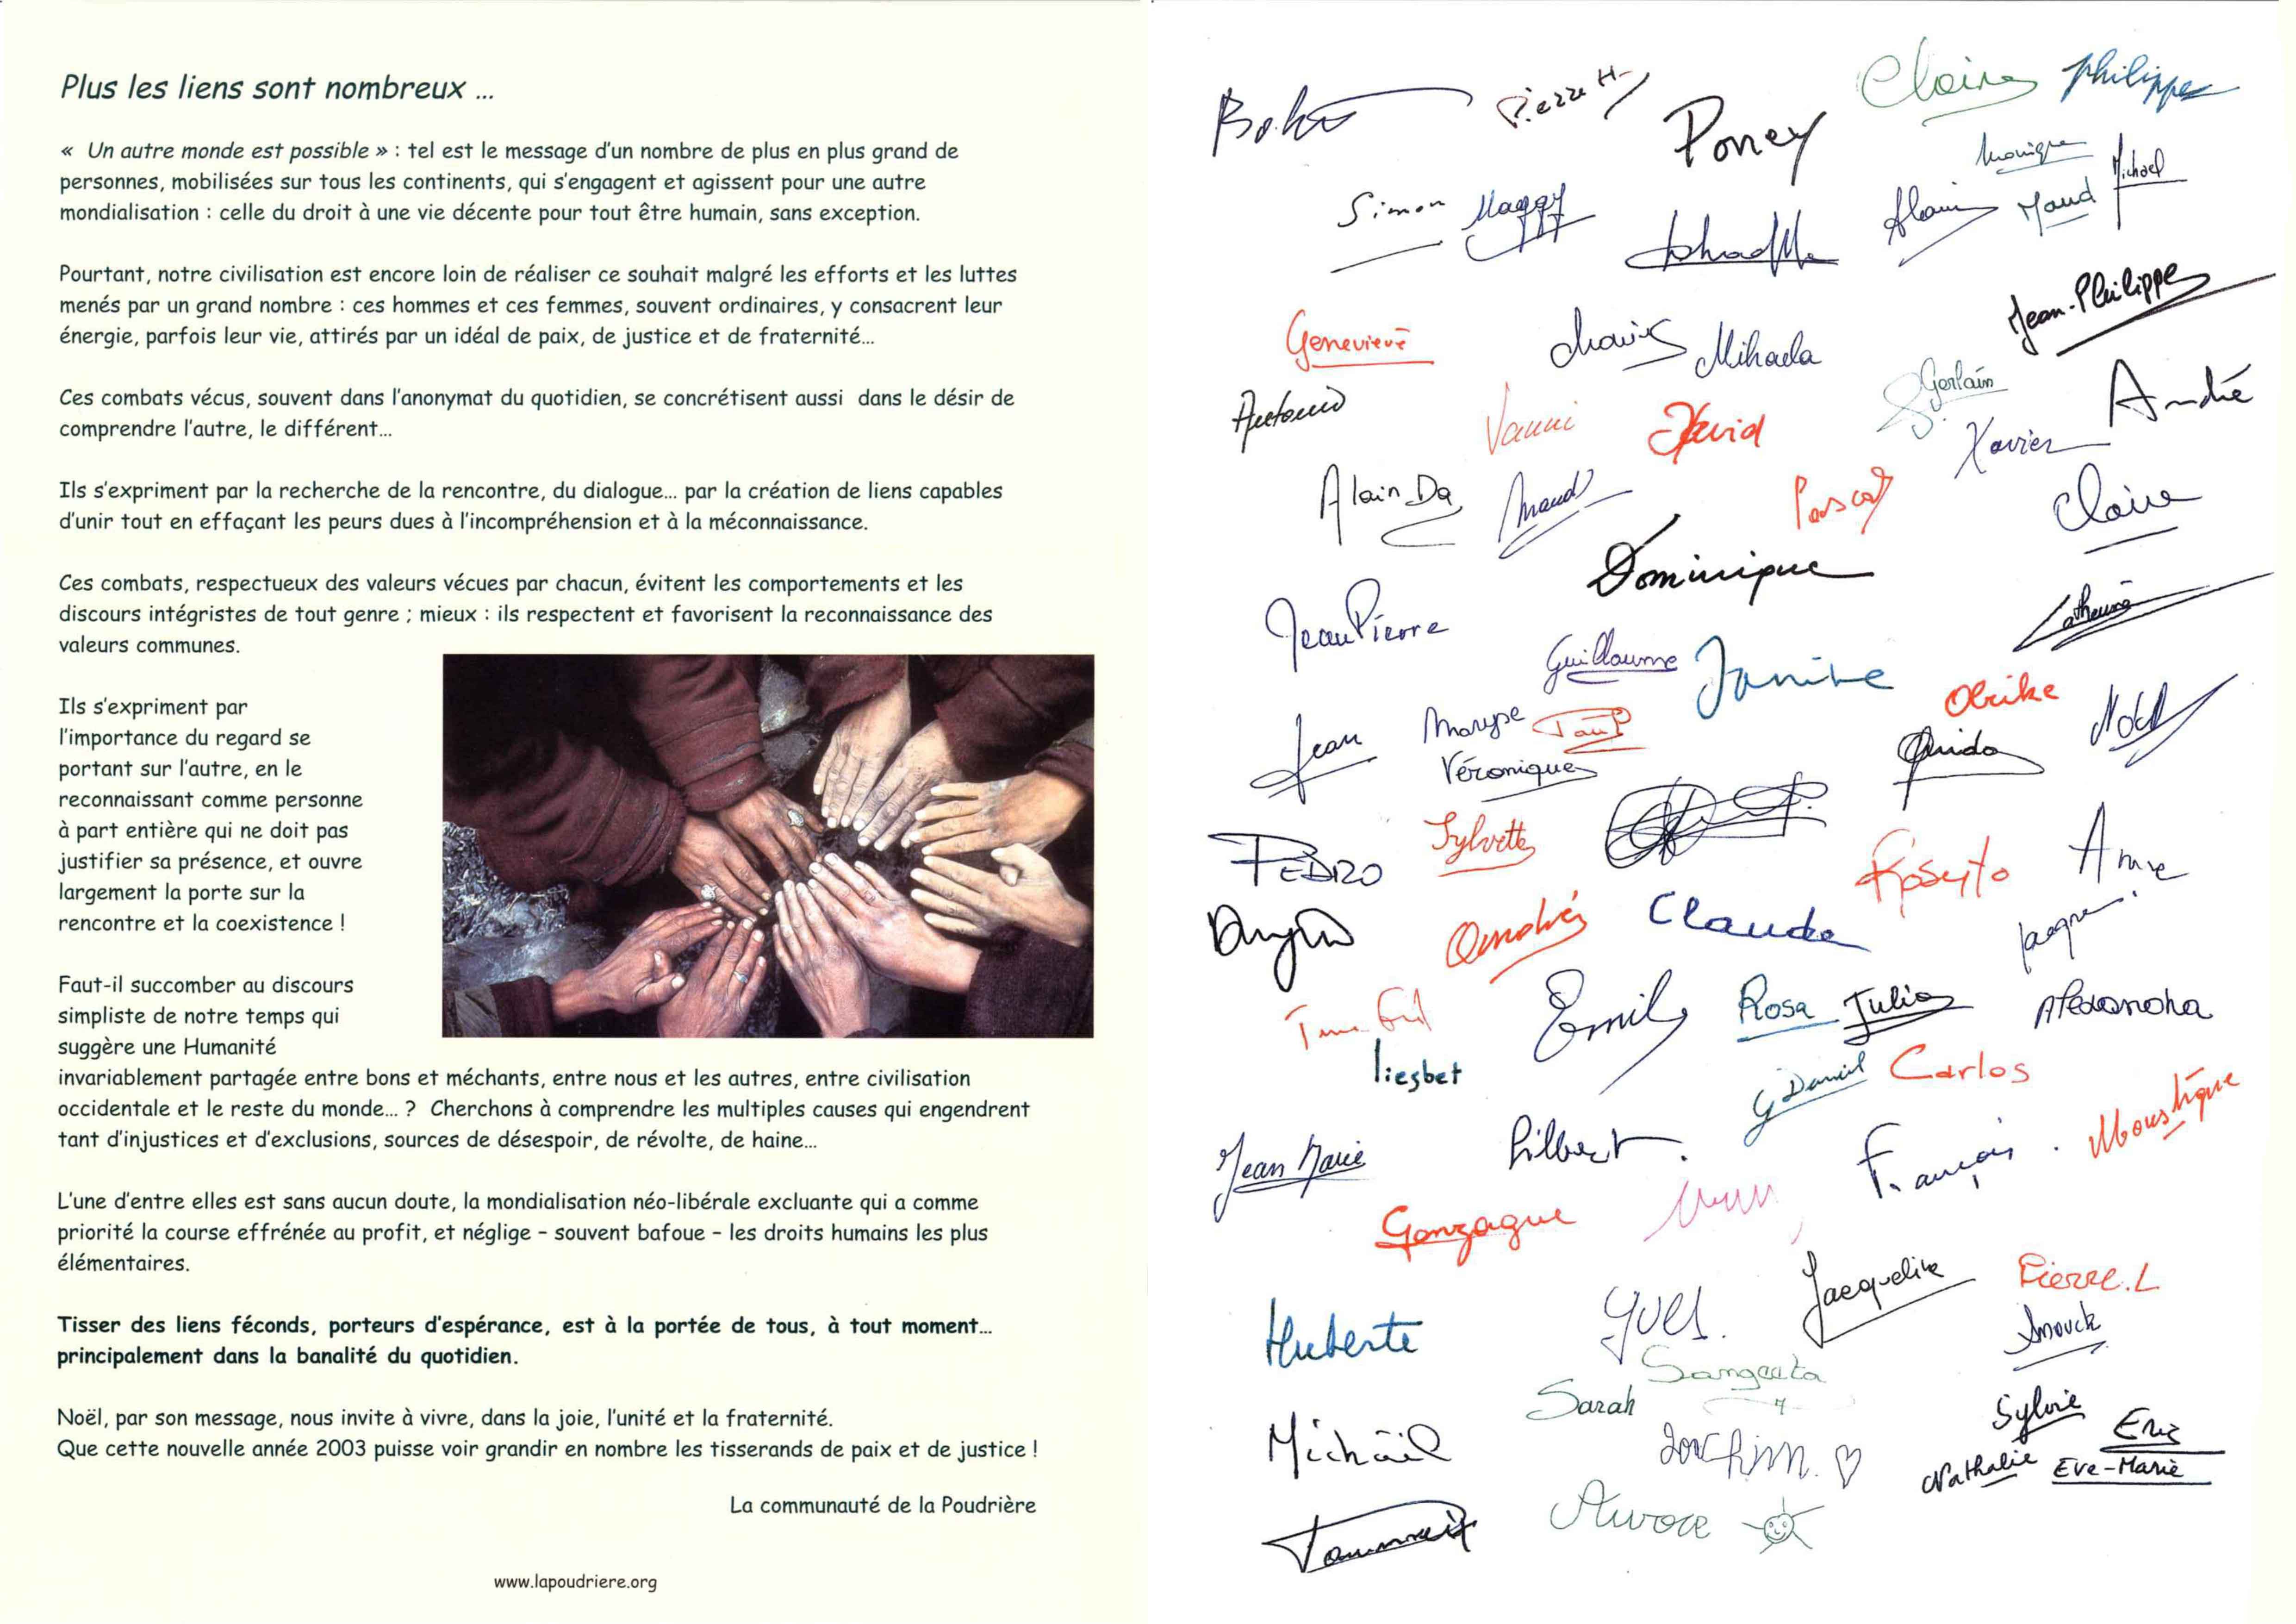 Plus les liens sont nombreux ...
« Un autre monde est possible » : tel est le message d'un nombre de plus en plus grand de
personnes, mobilisées sur tous les continents, qui s'engagent et agissent pour une autre
mondialisation : celle du droit à une vie décente pour tout être humain, sans exception.
Pourtant, notre civilisation est encore loin de réaliser ce souhait malgré les efforts et les luttes
menés par un grand nombre : ces hommes et ces femmes, souvent ordinaires, y consacrent leur
énergie, parfois leur vie, attirés par un idéal de paix, de justice et de fraternité...
Ces combats vécus, souvent dans l'anonymat du quotidien, se concrétisent aussi dans le désir de
comprendre l'autre, le différent...
Ils s'expriment par la recherche de la rencontre, du dialogue... par la création de liens capables
d'unir tout en effaçant les peurs dues à l'incompréhension et à la méconnaissance.
Ces combats, respectueux des valeurs vécues par chacun, évitent les comportements et les
discours intégristes de tout genre ; mieux : ils respectent et favorisent la reconnaissance des
valeurs communes.
Ils s'expriment par
l'importance du regard se
portant sur l'autre, en le
reconnaissant comme personne
à part entière qui ne doit pas
justifier sa présence, et ouvre
largement la porte sur la
rencontre et la coexistence !
Faut-il succomber au discours
simpliste de notre temps qui
suggère une Humanité
invariablement partagée entre bons et méchants, entre nous et les autres, entre civilisation
occidentale et le reste du monde... ? Cherchons à comprendre les multiples causes qui engendrent
tant d'injustices et d'exclusions, sources de désespoir, de révolte, de haine...
L'une d'entre elles est sans aucun doute, la mondialisation néo-libérale excluante qui a comme
priorité la course effrénée au profit, et néglige - souvent bafoue - les droits humains les plus
élémentaires.
Tisser des liens féconds, porteurs d'espérance, est à la portée de tous, à tout moment...
principalement dans la banalité du quotidien.
Noël, par son message, nous invite à vivre, dans la joie, l'unité et la fraternité.
Que cette nouvelle année 2003 puisse voir grandir en nombre les tisserands de paix et de justice !
La communauté de la Poudrière
www.lapoudriere.org
Pierre H
Poney
Claire
Philippe
Monique
Michael
Simon
Maggy
Alain
Maud
Jean-Philippe
Geneviève
Mihaela
Gerlain
André
Antonio
Vanni
David
Xavier
Alain Da
Maud
Pascal
Claire
Dominique
Jean Pierre
Catherine
Guillaume
Janine
Ulrike
Noël
Jean
Maryse
Paul
Véronique
Guido
PEDRO
Sylvette
Rosyto
Anne
Andrés
Claude
Jacques
Emily
Rosa
Julia
Alexandra
liesbet
G Daniel
Carlos
Moustique
Jean Marie
François
Gonzague
Jacqueline
Pierre.L
Huberte
Yves.
Anouck
Sangeeta
Sarah
Sylvie
Eric
Michaël
Joachim.
Nathalie
Eve-Marie
Aurore